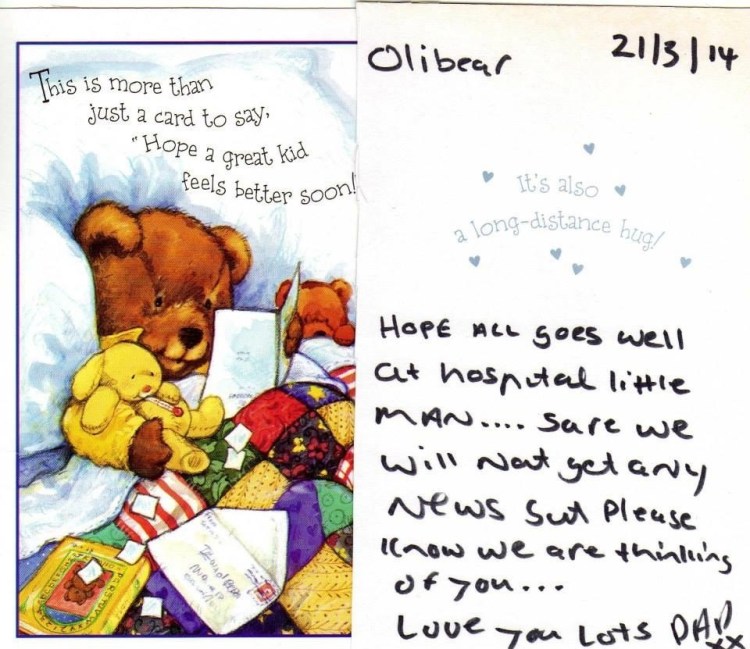 This is more than
just a card to say,
"Hope a great kid
feels better soon!
Olibear
21/3/14
It's also
a long-distance hug!
HOPE ALL goes well
at hospital little
MAN.... Sure we
will Not get any
News but Please
Know we are thinking
of you...
Love you Lots DAD
xx